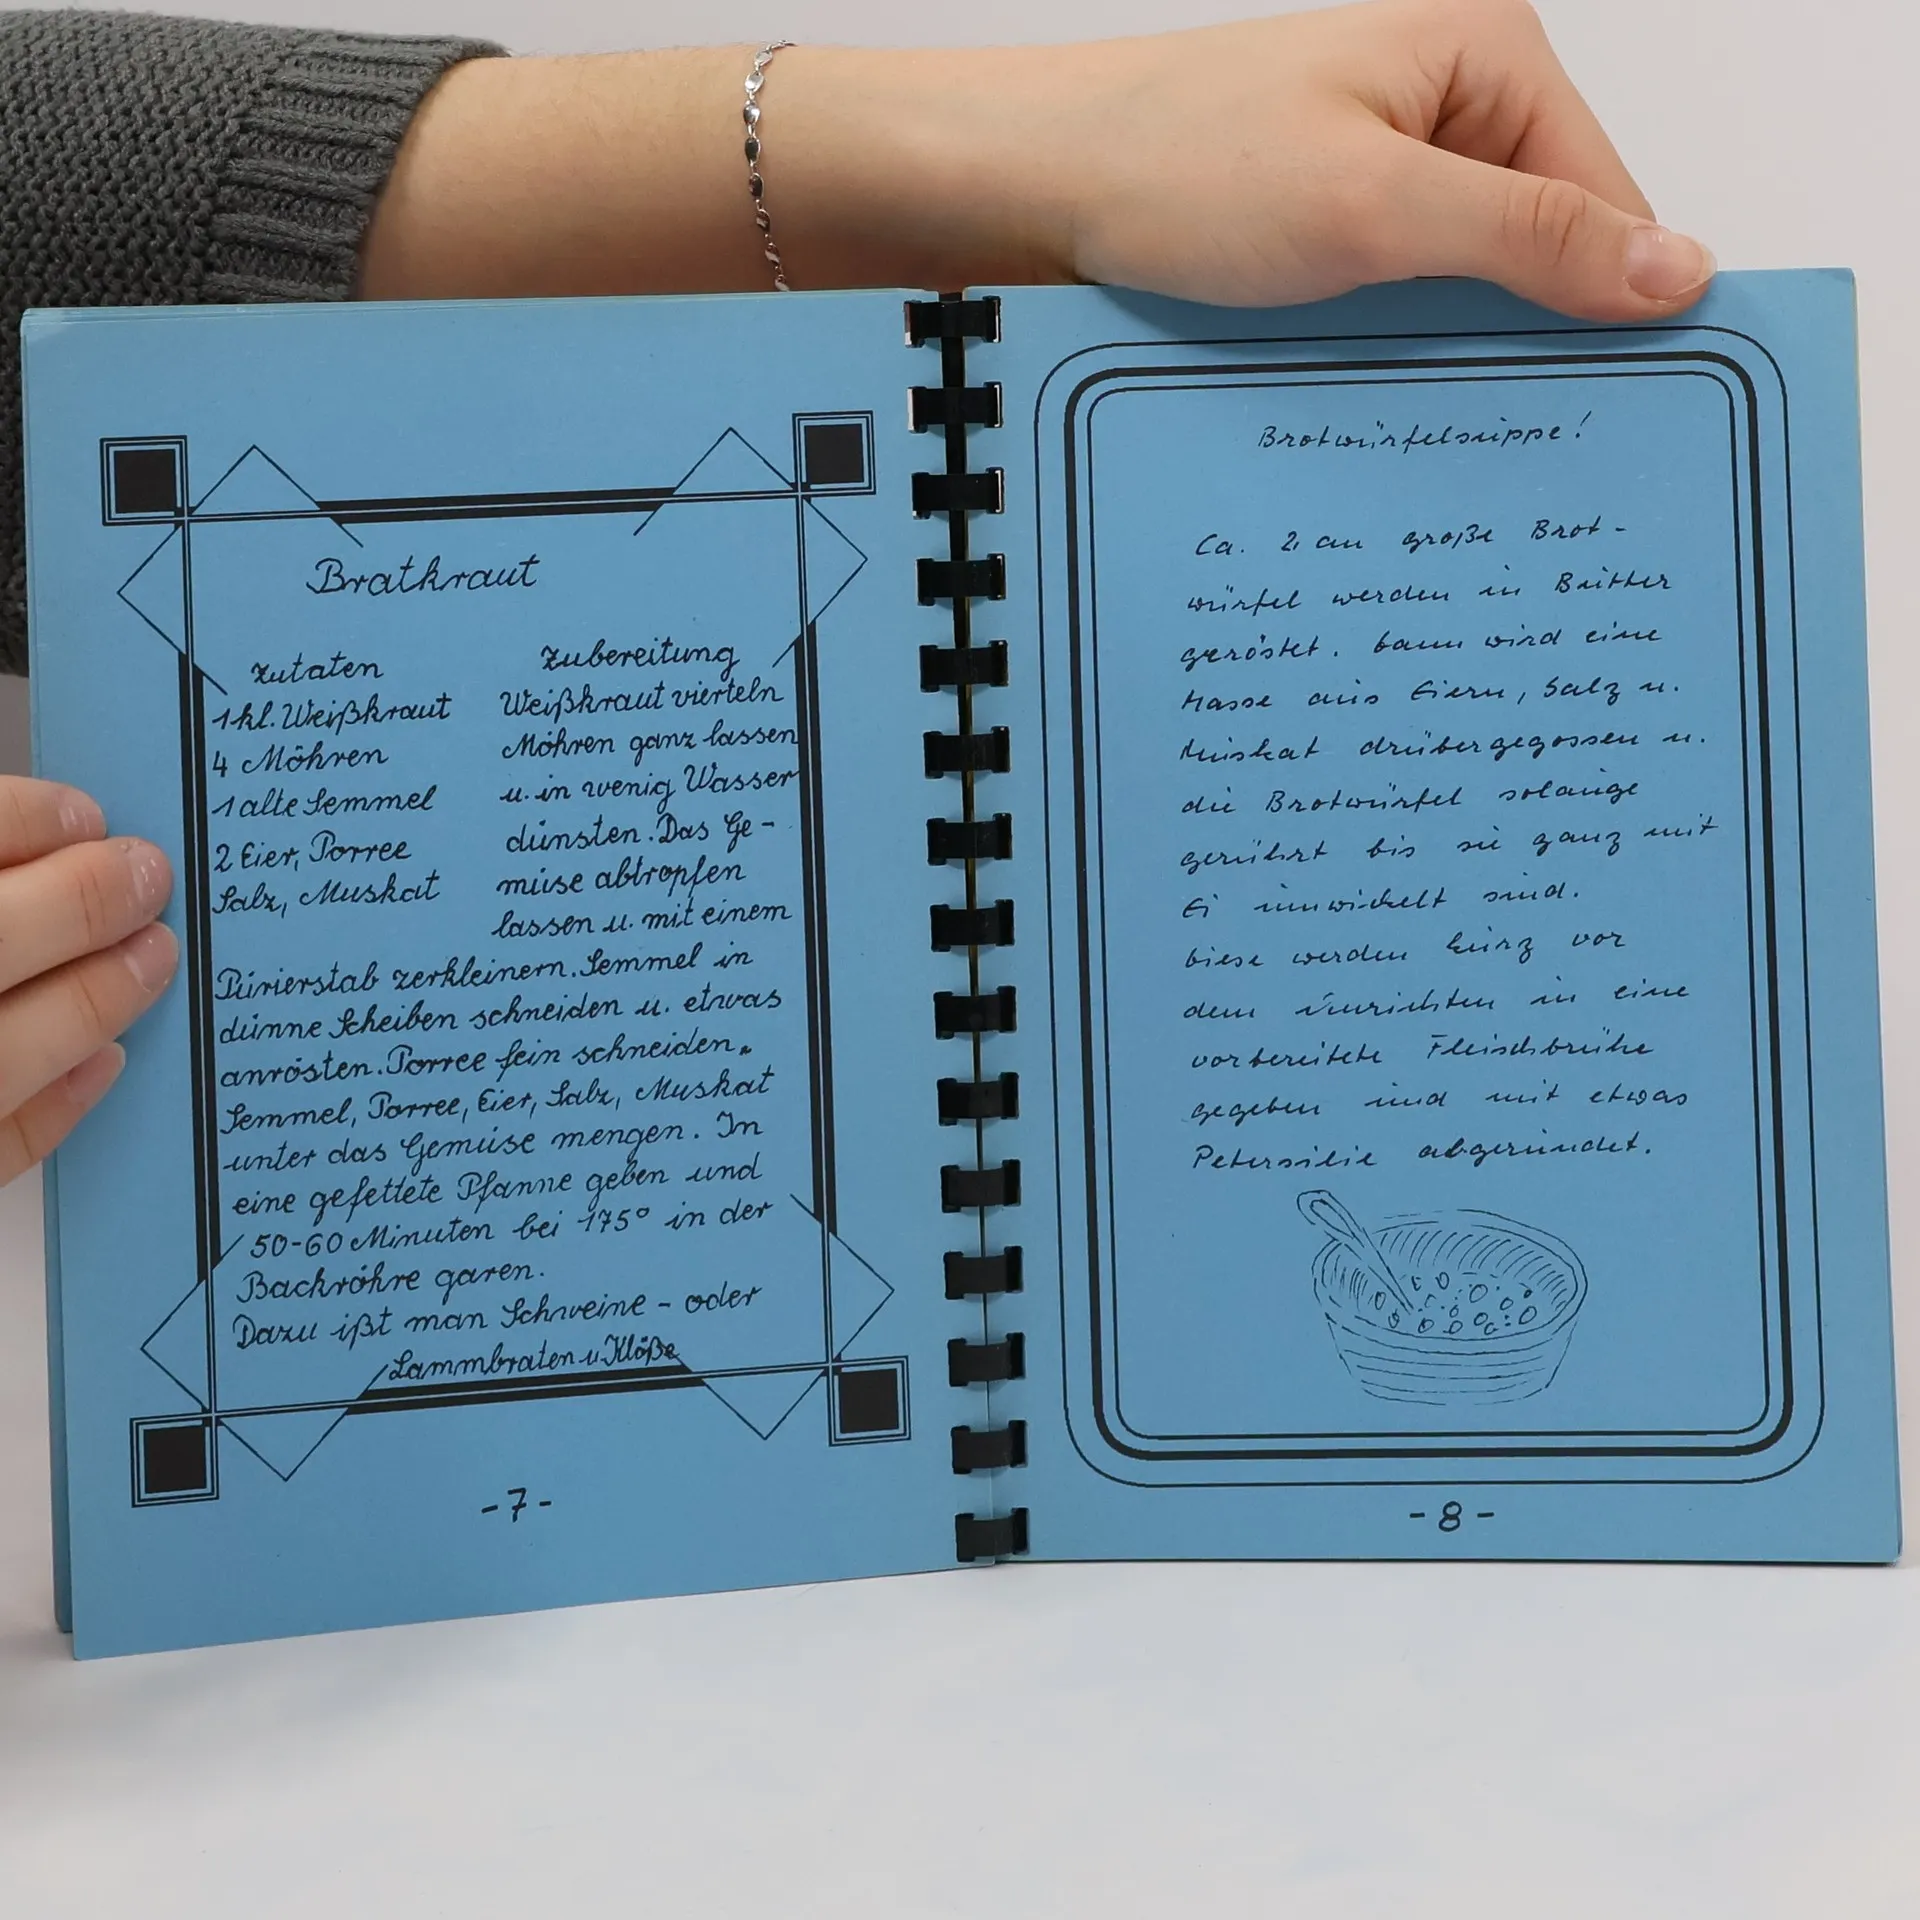 Bratkraut
Zutaten
1 kl. Weißkraut
4 Möhren
1 alte Semmel
2 Eier, Porree
Salz, Muskat
Zubereitung
Weißkraut vierteln
Möhren ganz lassen
u. in wenig Wasser
dünsten. Das Ge-
müse abtropfen
lassen u. mit einem
Pürierstab zerkleinern. Semmel in
dünne Scheiben schneiden u. etwas
anrösten. Porree fein schneiden.
Semmel, Porree, Eier, Salz, Muskat
unter das Gemüse mengen. In
eine gefettete Pfanne geben und
50-60 Minuten bei 175° in der
Backröhre garen.
Dazu ißt man Schweine- oder
Lammbraten u Klöße
-7-
Brotwürfelsuppe!
Ca. 2 cm große Brot-
würfel werden in Butter
geröstet. Dann wird eine
Masse aus Eiern, Salz u.
Muskat drübergegossen u.
die Brotwürfel solange
gerührt bis sie ganz mit
Ei umwickelt sind.
Diese werden kurz vor
dem Anrichten in eine
vorbereitete Fleischbrühe
gegeben und mit etwas
Petersilie abgerundet.
-8-